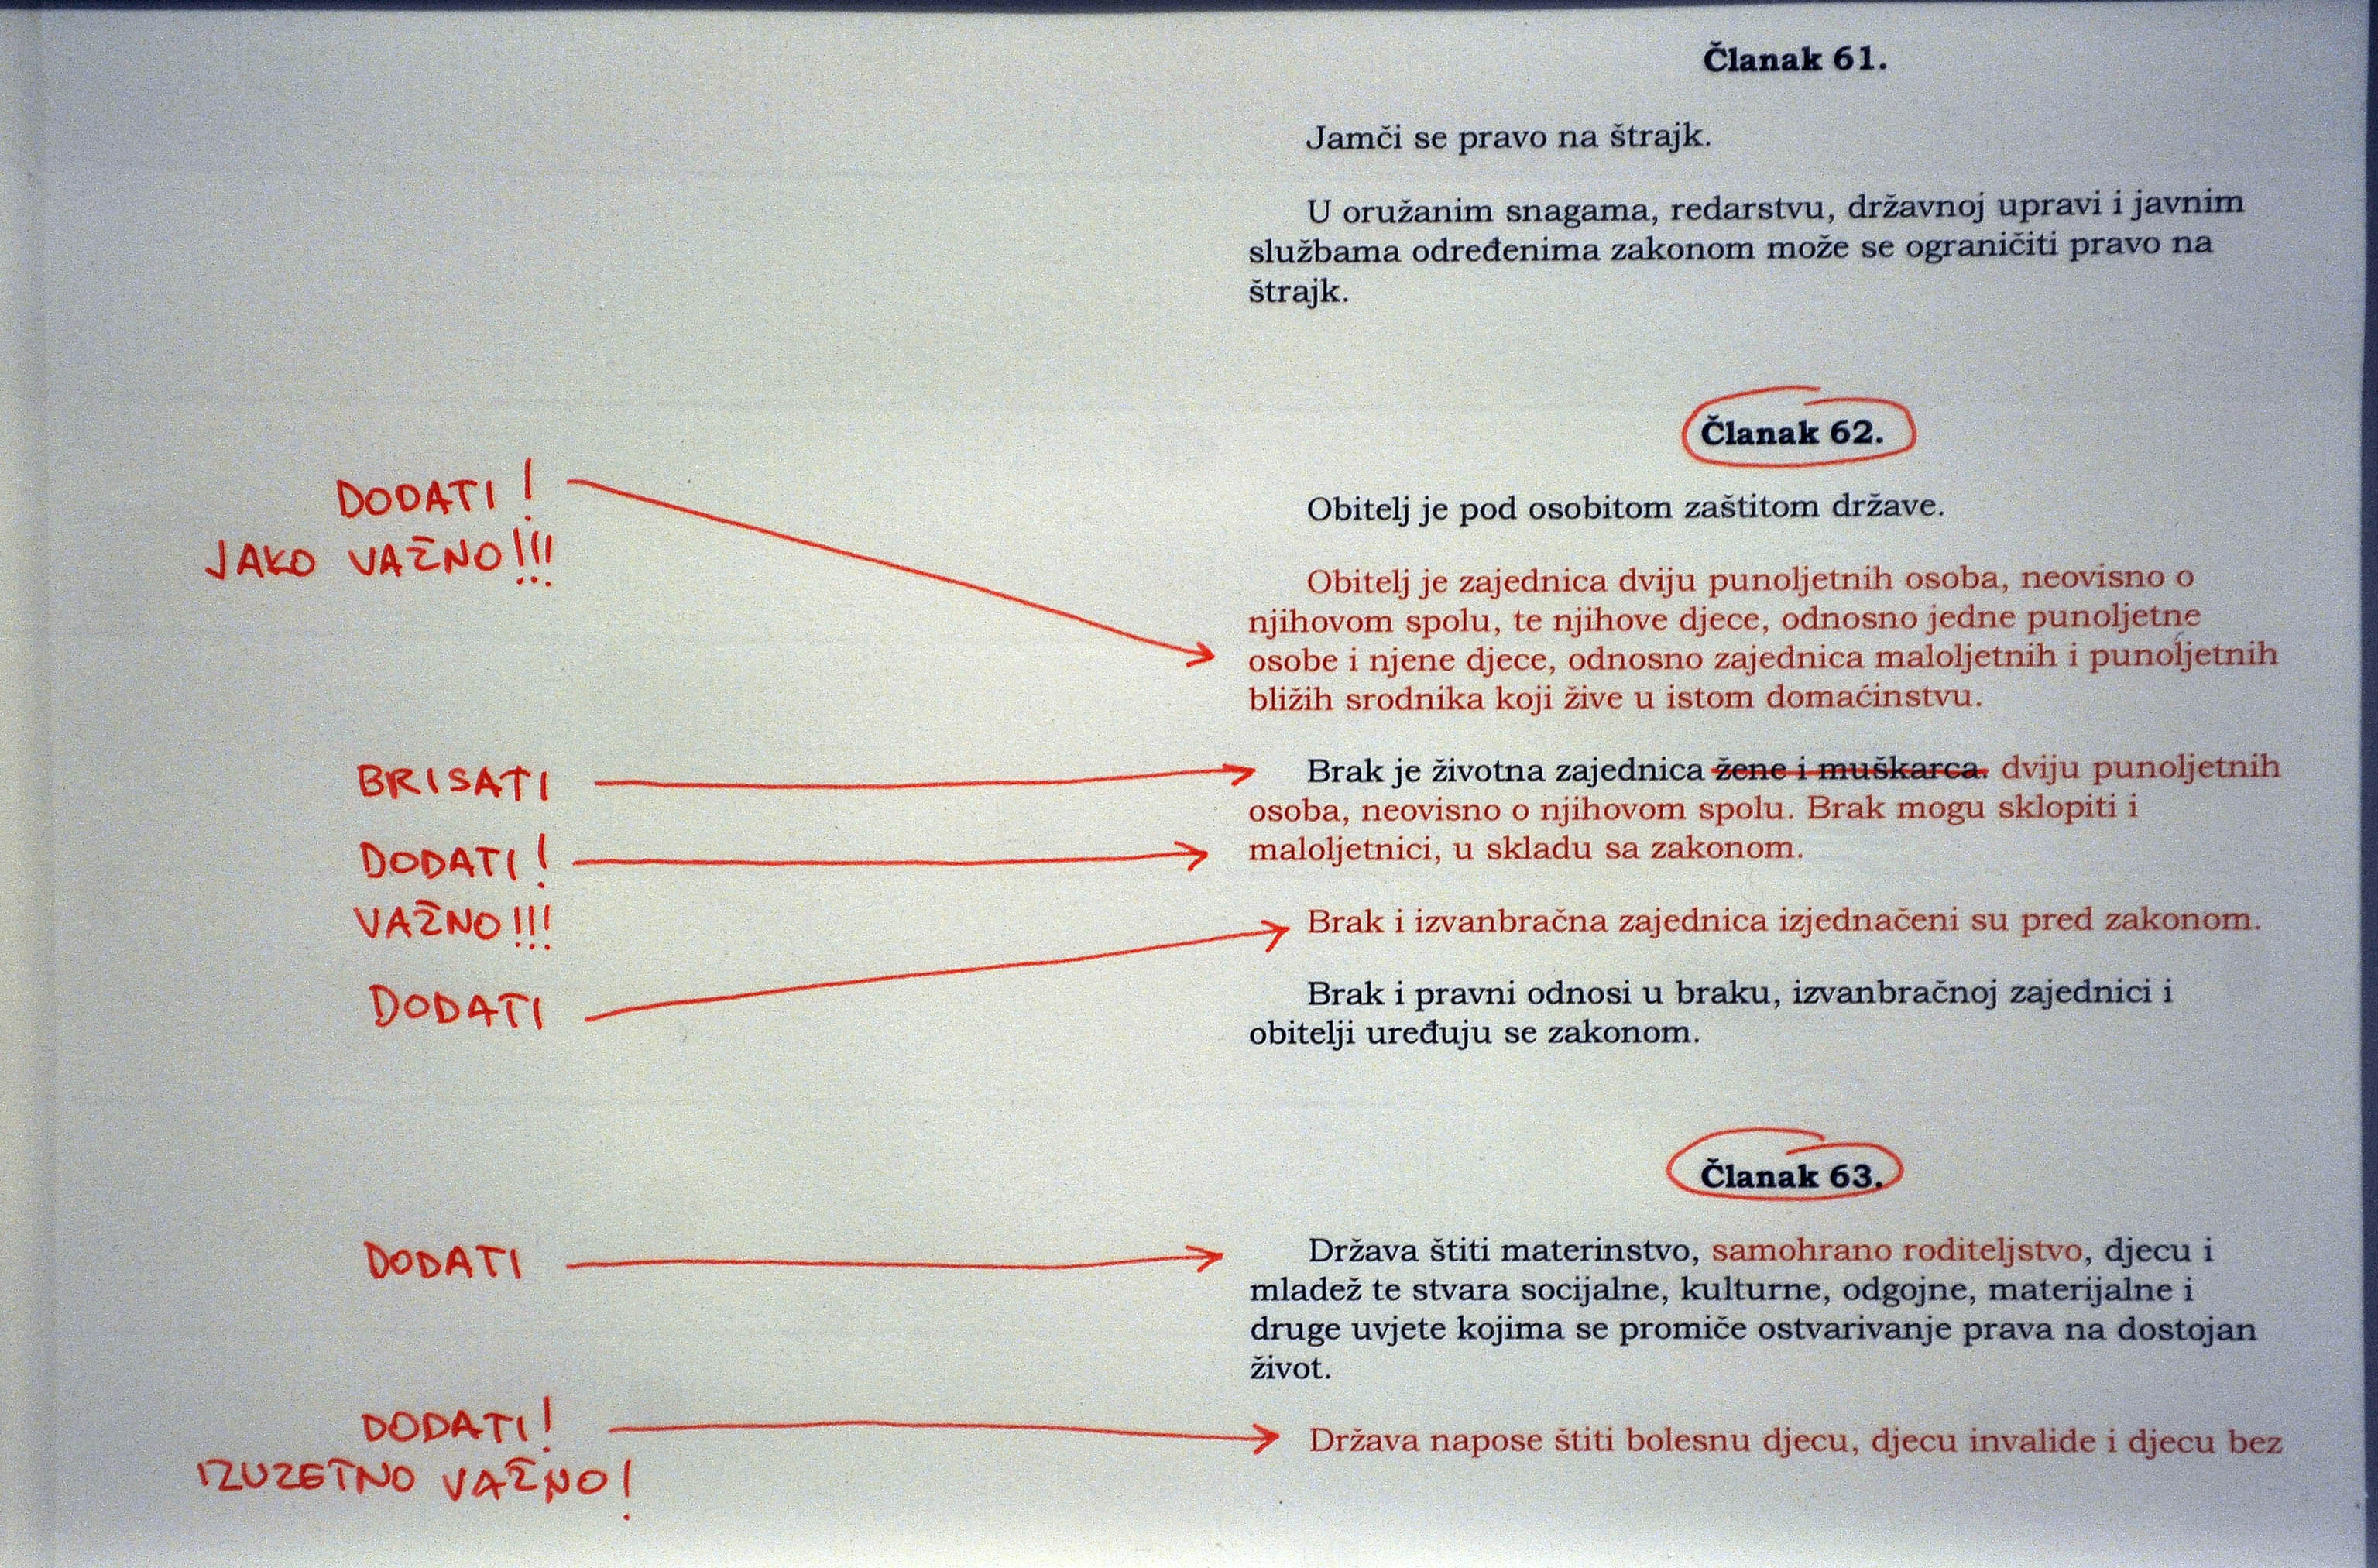 Članak 61.
Jamči se pravo na štrajk.
U oružanim snagama, redarstvu, državnoj upravi i javnim
službama određenima zakonom može se ograničiti pravo na
štrajk.
Članak 62.
Obitelj je pod osobitom zaštitom države.
DODATI!
JAKO VAŽNO!!!
Obitelj je zajednica dviju punoljetnih osoba, neovisno o
njihovom spolu, te njihove djece, odnosno jedne punoljetne
osobe i njene djece, odnosno zajednica maloljetnih i punoljetnih
bližih srodnika koji žive u istom domaćinstvu.
BRISATI
Brak je životna zajednica žene i muškarca. dviju punoljetnih
osoba, neovisno o njihovom spolu. Brak mogu sklopiti i
maloljetnici, u skladu sa zakonom.
DODATI!
VAŽNO!!!
Brak i izvanbračna zajednica izjednačeni su pred zakonom.
DODATI
Brak i pravni odnosi u braku, izvanbračnoj zajednici i
obitelji uređuju se zakonom.
Članak 63.
DODATI
Država štiti materinstvo, samohrano roditeljstvo, djecu i
mladež te stvara socijalne, kulturne, odgojne, materijalne i
druge uvjete kojima se promiče ostvarivanje prava na dostojan
život.
DODATI!
IZUZETNO VAŽNO!
Država napose štiti bolesnu djecu, djecu invalide i djecu bez